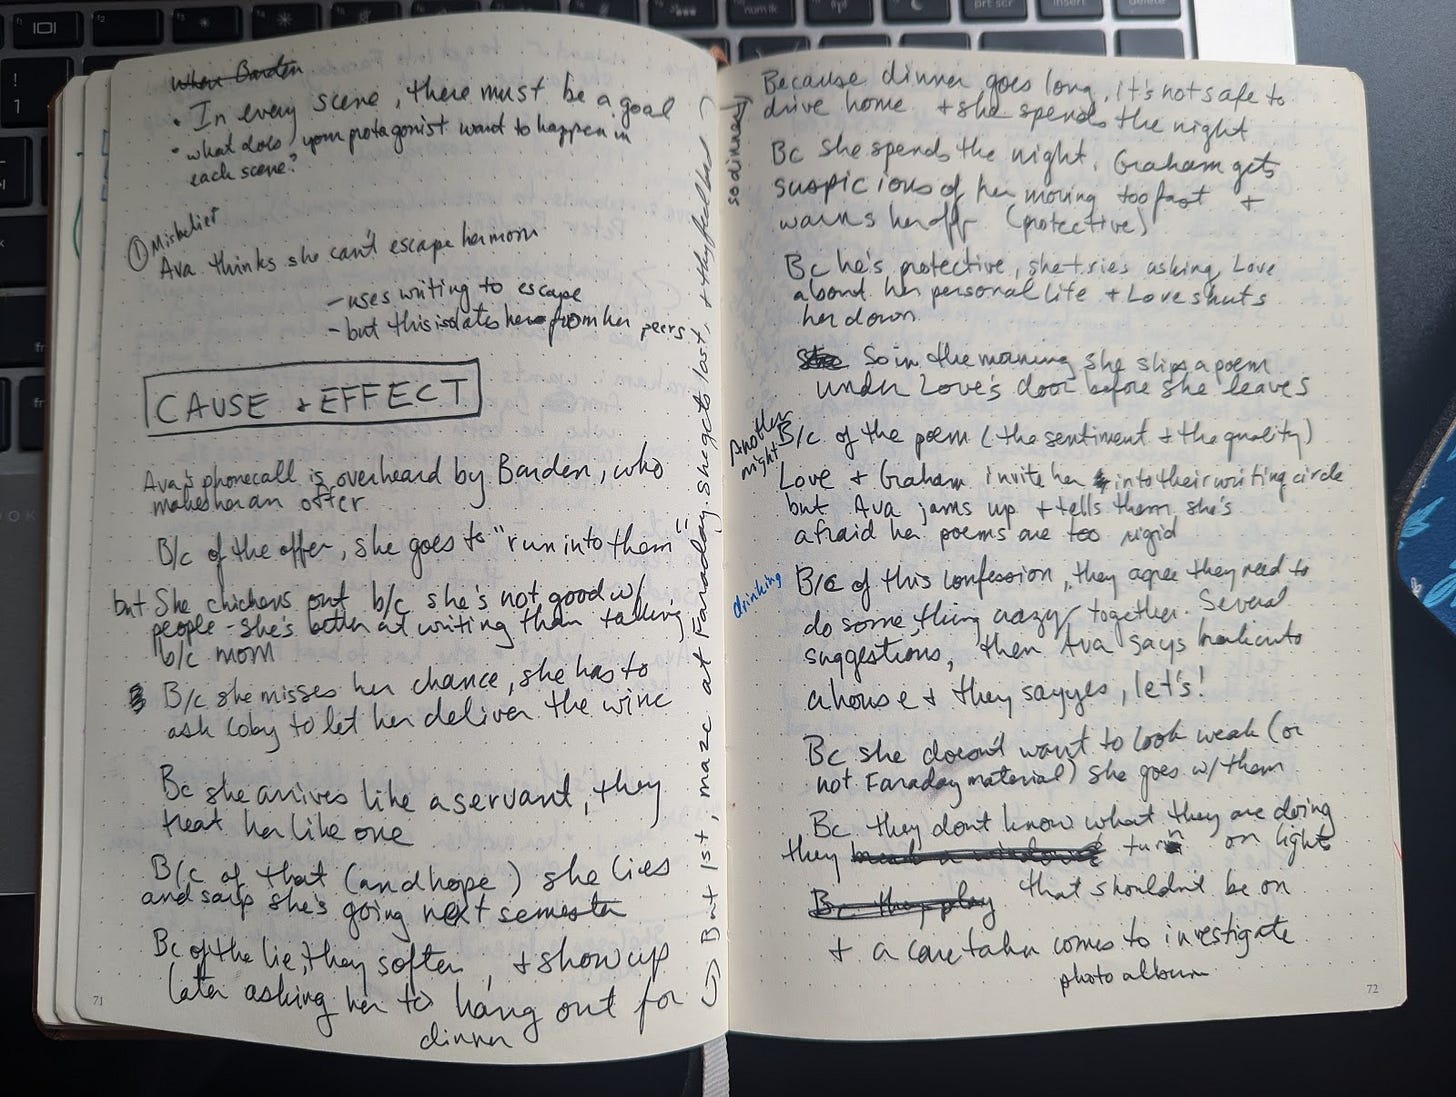 When Barden
• In every scene, there must be a goal
• what does your protagonist want to happen in
each scene?
① Misbelief
Ava thinks she can't escape her mom
- uses writing to escape
- but this isolates her from her peers
CAUSE + EFFECT
Ava's phonecall is overheard by Barden, who
makes her an offer
B/c of the offer, she goes to "run into them"
but She chickens out b/c she's not good w/
people - she's better at writing than talking
b/c mom
B/c she misses her chance, she has to
ask Coby to let her deliver the wine
Bc she arrives like a servant, they
treat her like one
B/c of that (and hope) she lies
and says she's going next semester
Bc of the lie, they soften, + show up
later asking her to hang out for
dinner
But 1st, maze at Faraday, she gets lost, + they feel bad
71
so dinner
Because dinner goes long, it's not safe to
drive home + she spends the night
Bc she spends the night, Graham gets
suspicious of her moving too fast +
warns her off (protective)
Bc he's protective, she tries asking Love
about her personal life + Love shuts
her down
She So in the morning she slips a poem
under Love's door before she leaves
Another
night
B/c of the poem (the sentiment + the quality)
Love + Graham invite her into their writing circle
but Ava jams up + tells them she's
afraid her poems are too rigid
drinking
B/c of this confession, they agree they need to
do something crazy together. Several
suggestions, then Ava says break into
a house + they say yes, let's!
Bc she doesn't want to look weak (or
not Faraday material) she goes w/ them
Bc they don't know what they are doing
they break a window turn on light
Bc they play that shouldn't be on
+ a caretaker comes to investigate
photo album
72